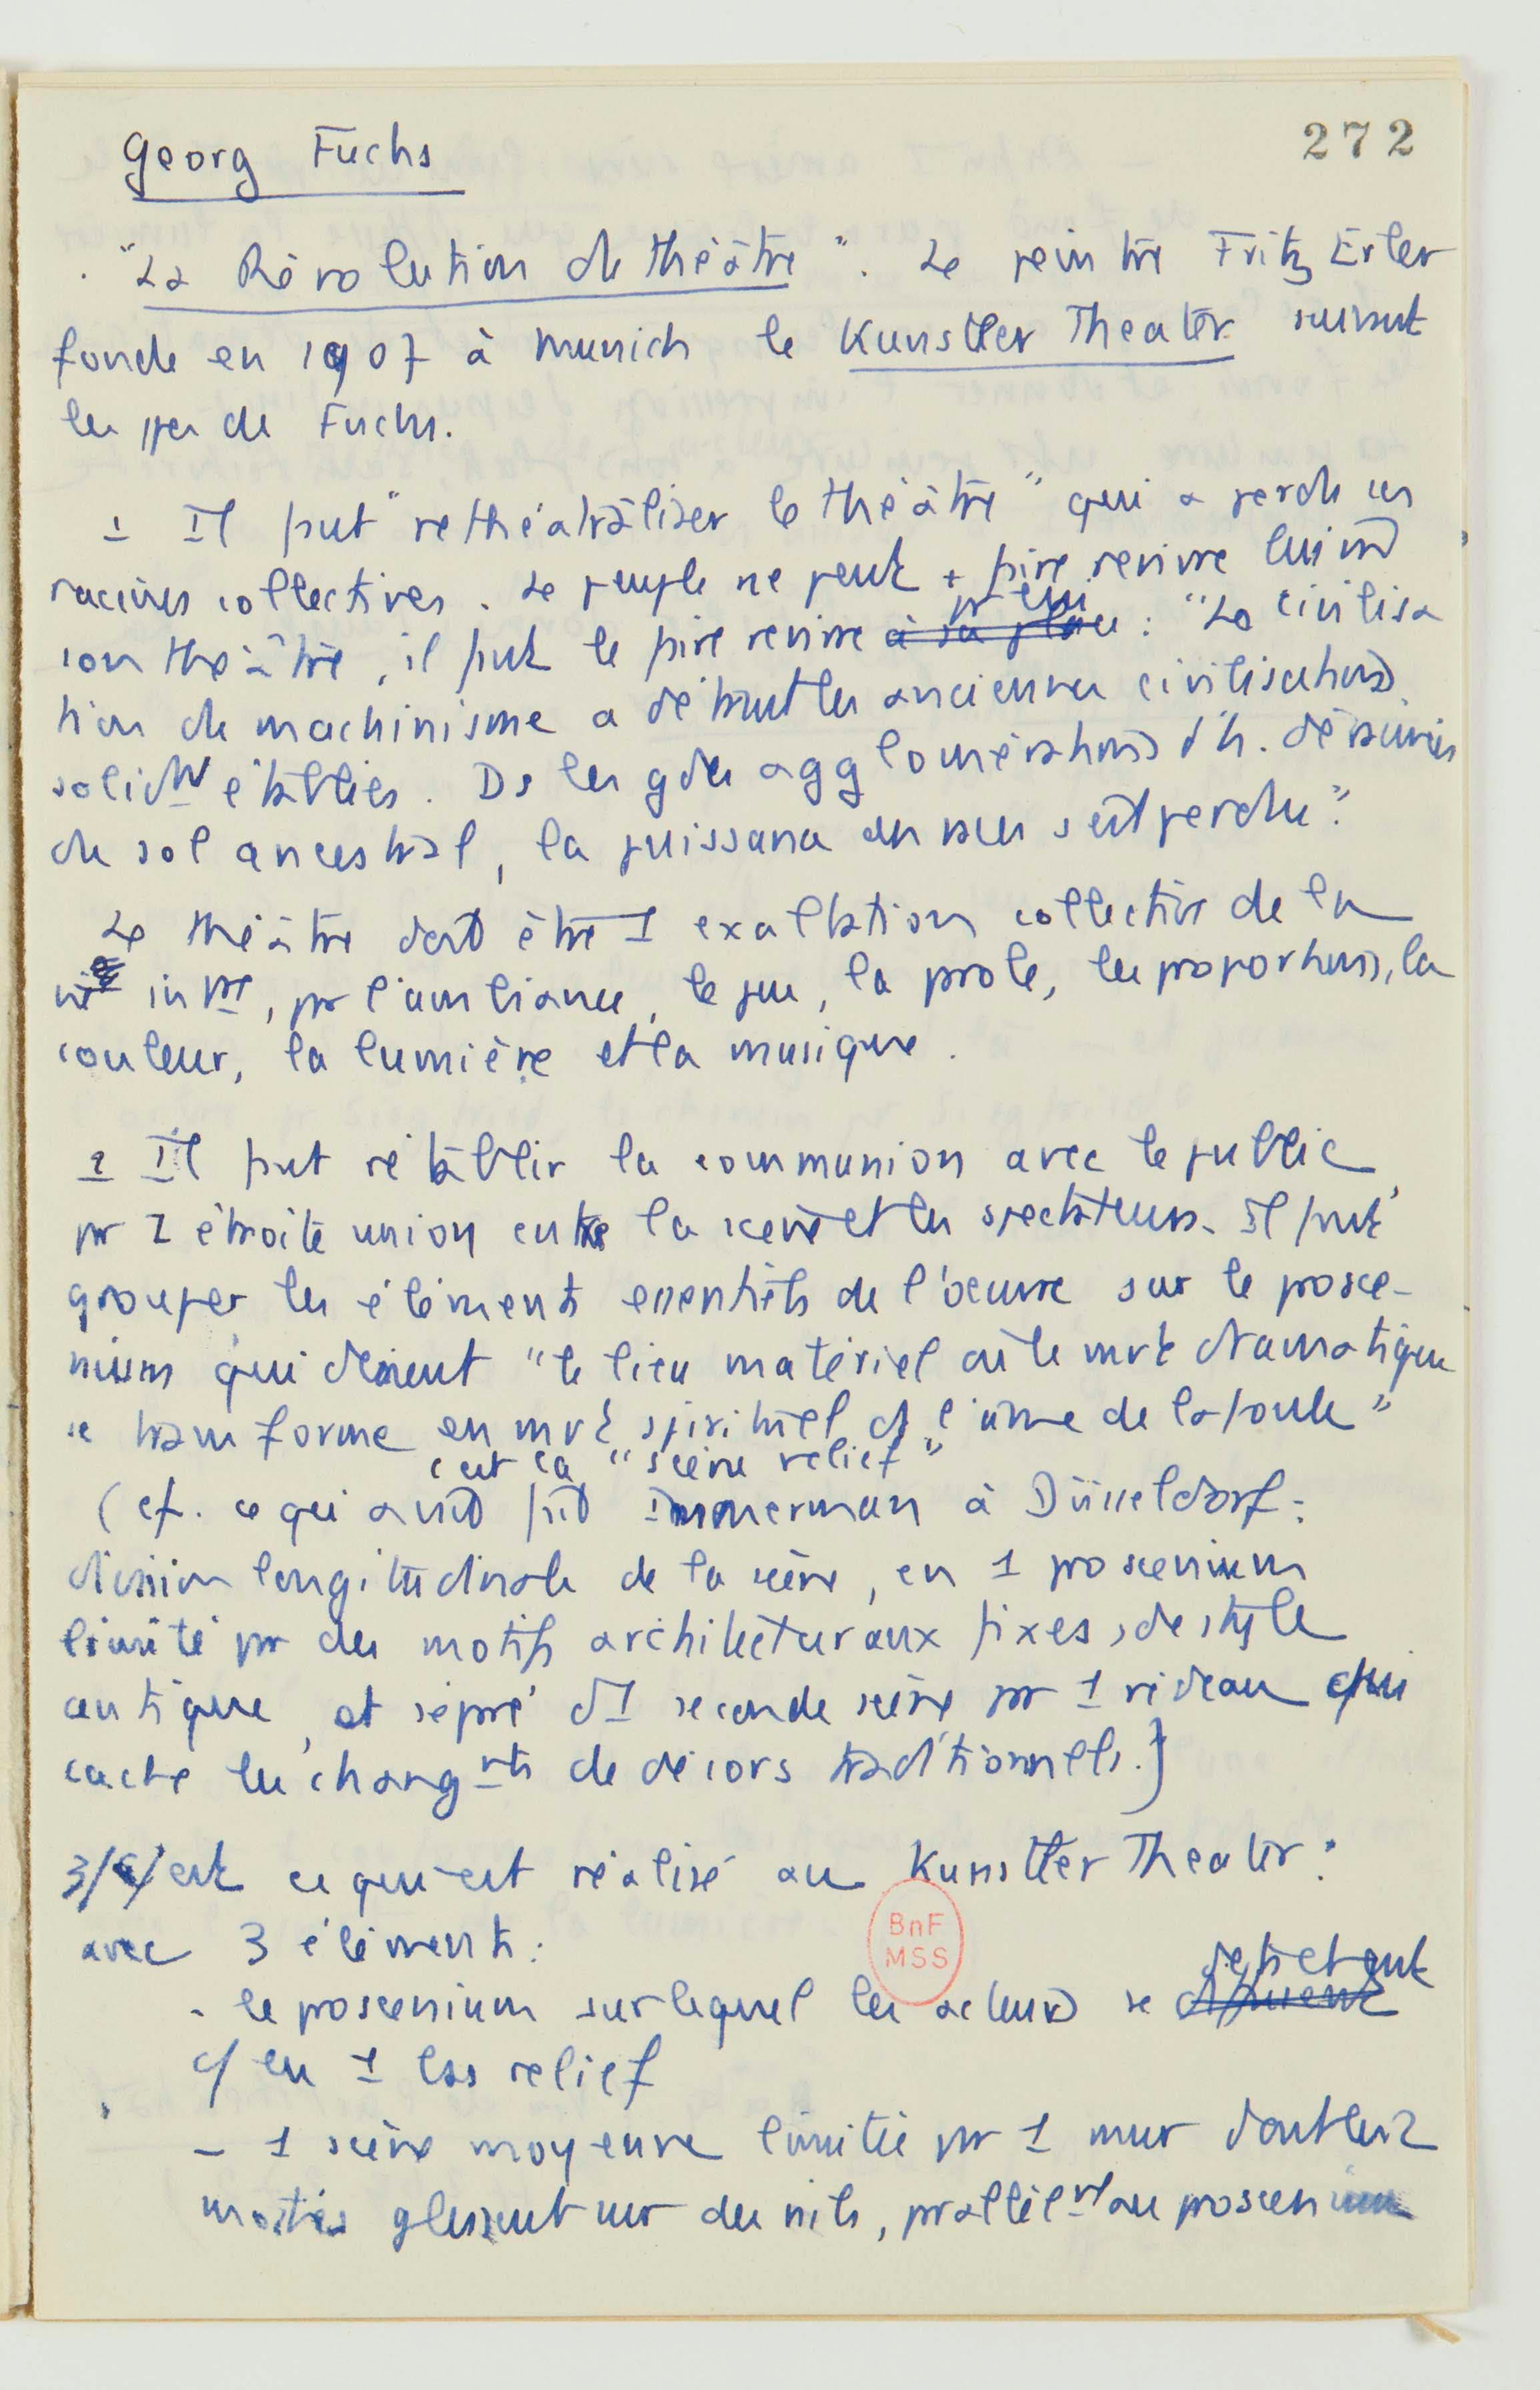 272
Georg Fuchs
. "La Révolution du théâtre". Le peintre Fritz Erler
fonde en 1907 à Munich le Kunstler Theater suivant
les de Fuchs.
1 Il faut "rethéatraliser le théâtre" qui a perdu ses
racines collectives. Le peuple ne peut + faire revivre lui m̂
son théâtre, il faut le faire revivre à sa place pr lui : "La civilisa
tion du machinisme a détruit les anciennes civilisations
solidmt établies. Ds les gdes agglomérations d'h. déracinés
du sol ancestral, la puissance des s'est perdue".
Le théâtre doit être 1 exaltation collective de la
vie intre, pr l'ambiance, le jeu, la prole, les proportions, la
couleur, la lumière et la musique.
2 Il faut rétablir la communion avec le public,
pr 1 étroite union entre la scène et les spectateurs. Il faut
grouper les éléments essentiels de l'oeuvre sur le prosce-
nium qui devient "le lieu matériel où le mvt dramatique
se transforme en mvt spirituel ds l'âme de la foule"
c'est la "scène relief"
(cf. ce qui avait fait Immerman à Düsseldorf :
division longitudinale de la scène, en 1 proscenium
limité pr des motifs architecturaux fixes, de style
antique, et sépré d'1 seconde scène pr 1 rideau qui
cache les changmts de décors traditionnels.)
3/ C'est ce qui est réalisé au Kunstler Theater :
avec 3 éléments :
- le proscenium sur lequel les acteurs se détachent
c/ en 1 bas relief
- 1 scène moyenne limitée pr 1 mur dont les 2
moitiés glissent sur des rails, prallèlmt au proscenium
BnF
MSS